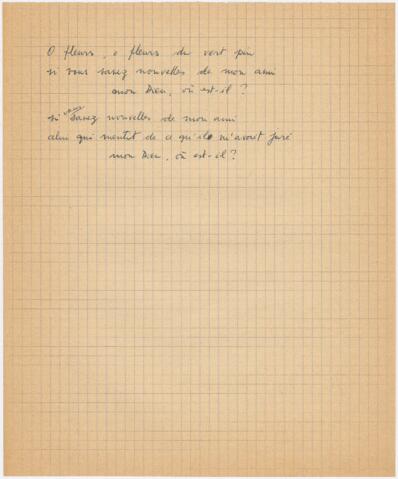 O fleurs, o fleurs du vert pin
si vous savez nouvelles de mon ami
mon Dieu, où est-il ?
si vous savez nouvelles de mon ami
celui qui mentit de ce qu'il m'avait juré
mon Dieu, où est-il ?